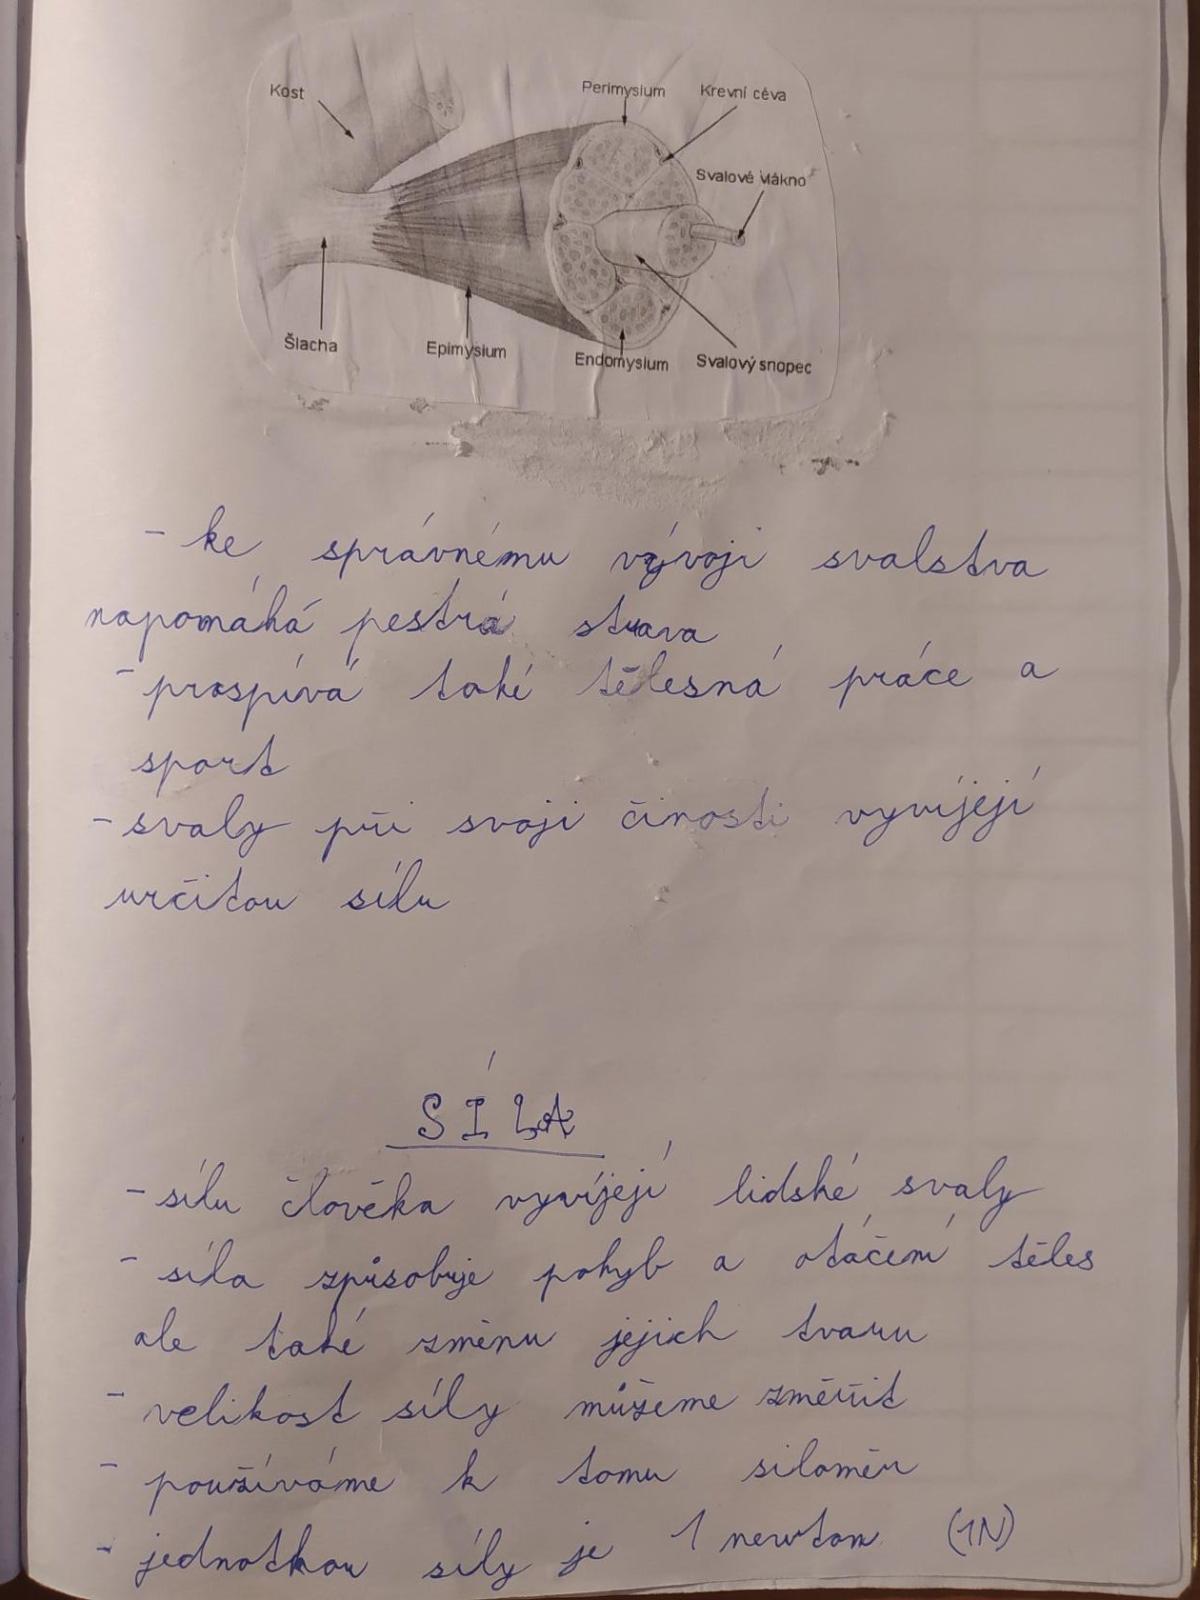 Kost
Perimysium
Krevní céva
Svalové vlákno
Šlacha
Epimysium
Endomysium
Svalový snopec
- ke správnému vývoji svalstva
napomáhá pestrá strava
- prospívá také tělesná práce a
sport
- svaly při svoji činosti vyvíjejí
určitou sílu
SÍLA
- sílu člověka vyvíjejí lidské svaly
- síla způsobuje pohyb a otáčení těles
ale také změnu jejich tvaru
- velikost síly můžeme změřit
- používáme k tomu siloměr
- jednotkou síly je 1 newton (1N)